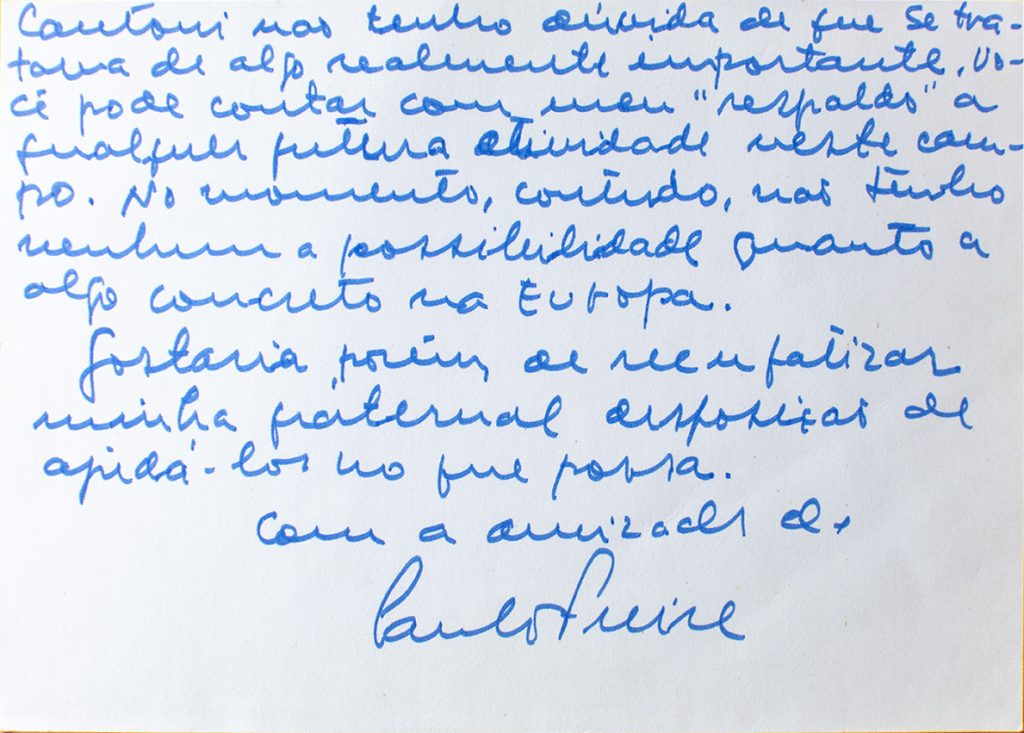 Cantoni não tenho dúvida de que se tra-
tava de algo realmente importante. Vo-
cê pode contar com meu "respaldo" a
qualquer futura atividade neste cam-
po. No momento, contudo, não tenho
nenhuma possibilidade quanto a
algo concreto na Europa.
Gostaria, porém, de reenfatizar
minha fraternal disposição de
ajudá-los no que possa.
Com a amizade de
Paulo Freire